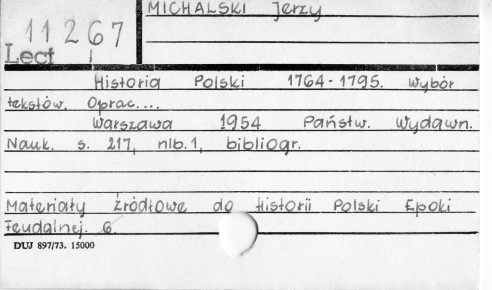 MICHALSKI Jerzy
11267
Lect
Historia Polski 1764-1795. Wybór
tekstów. Oprac....
Warszawa 1954 Państw. Wydawn.
Nauk. s. 217, nlb.1, bibliogr.
Materiały źródłowe do Historii Polski Epoki
Feudalnej. 6.
DUJ 897/73. 15000